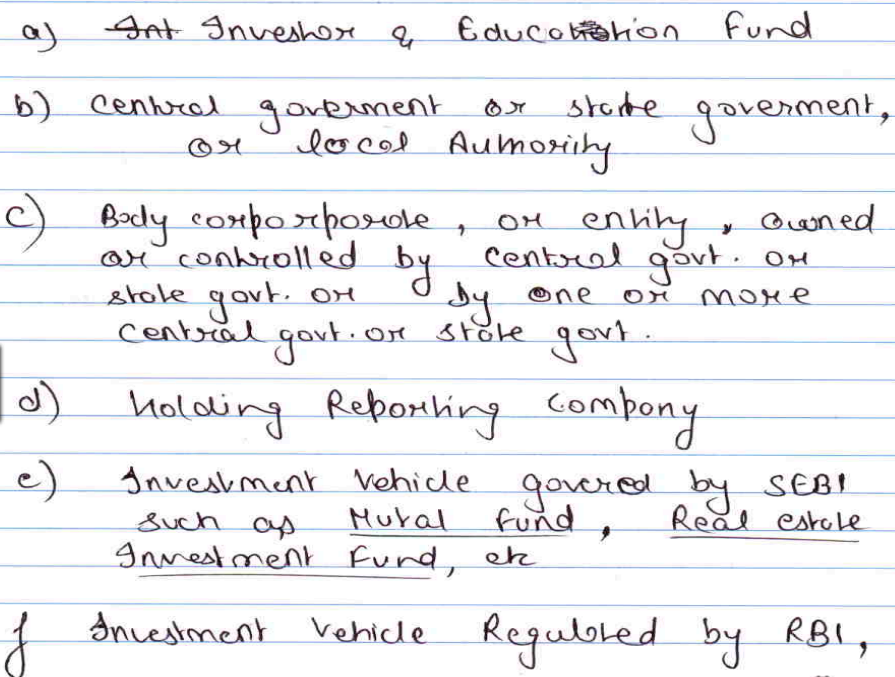 a) Int Investor & Education Fund
b) Central goverment or state goverment,
or local Authority
c) Body corporporate, or entity, owned
or controlled by Central govt. or
state govt. or by one or more
Central govt. or state govt.
d) Holding Reporting Company
e) Investment Vehicle govered by SEBI
such as Mutal fund, Real estate
Investment Fund, etc
f Investment Vehicle Regulated by RBI,